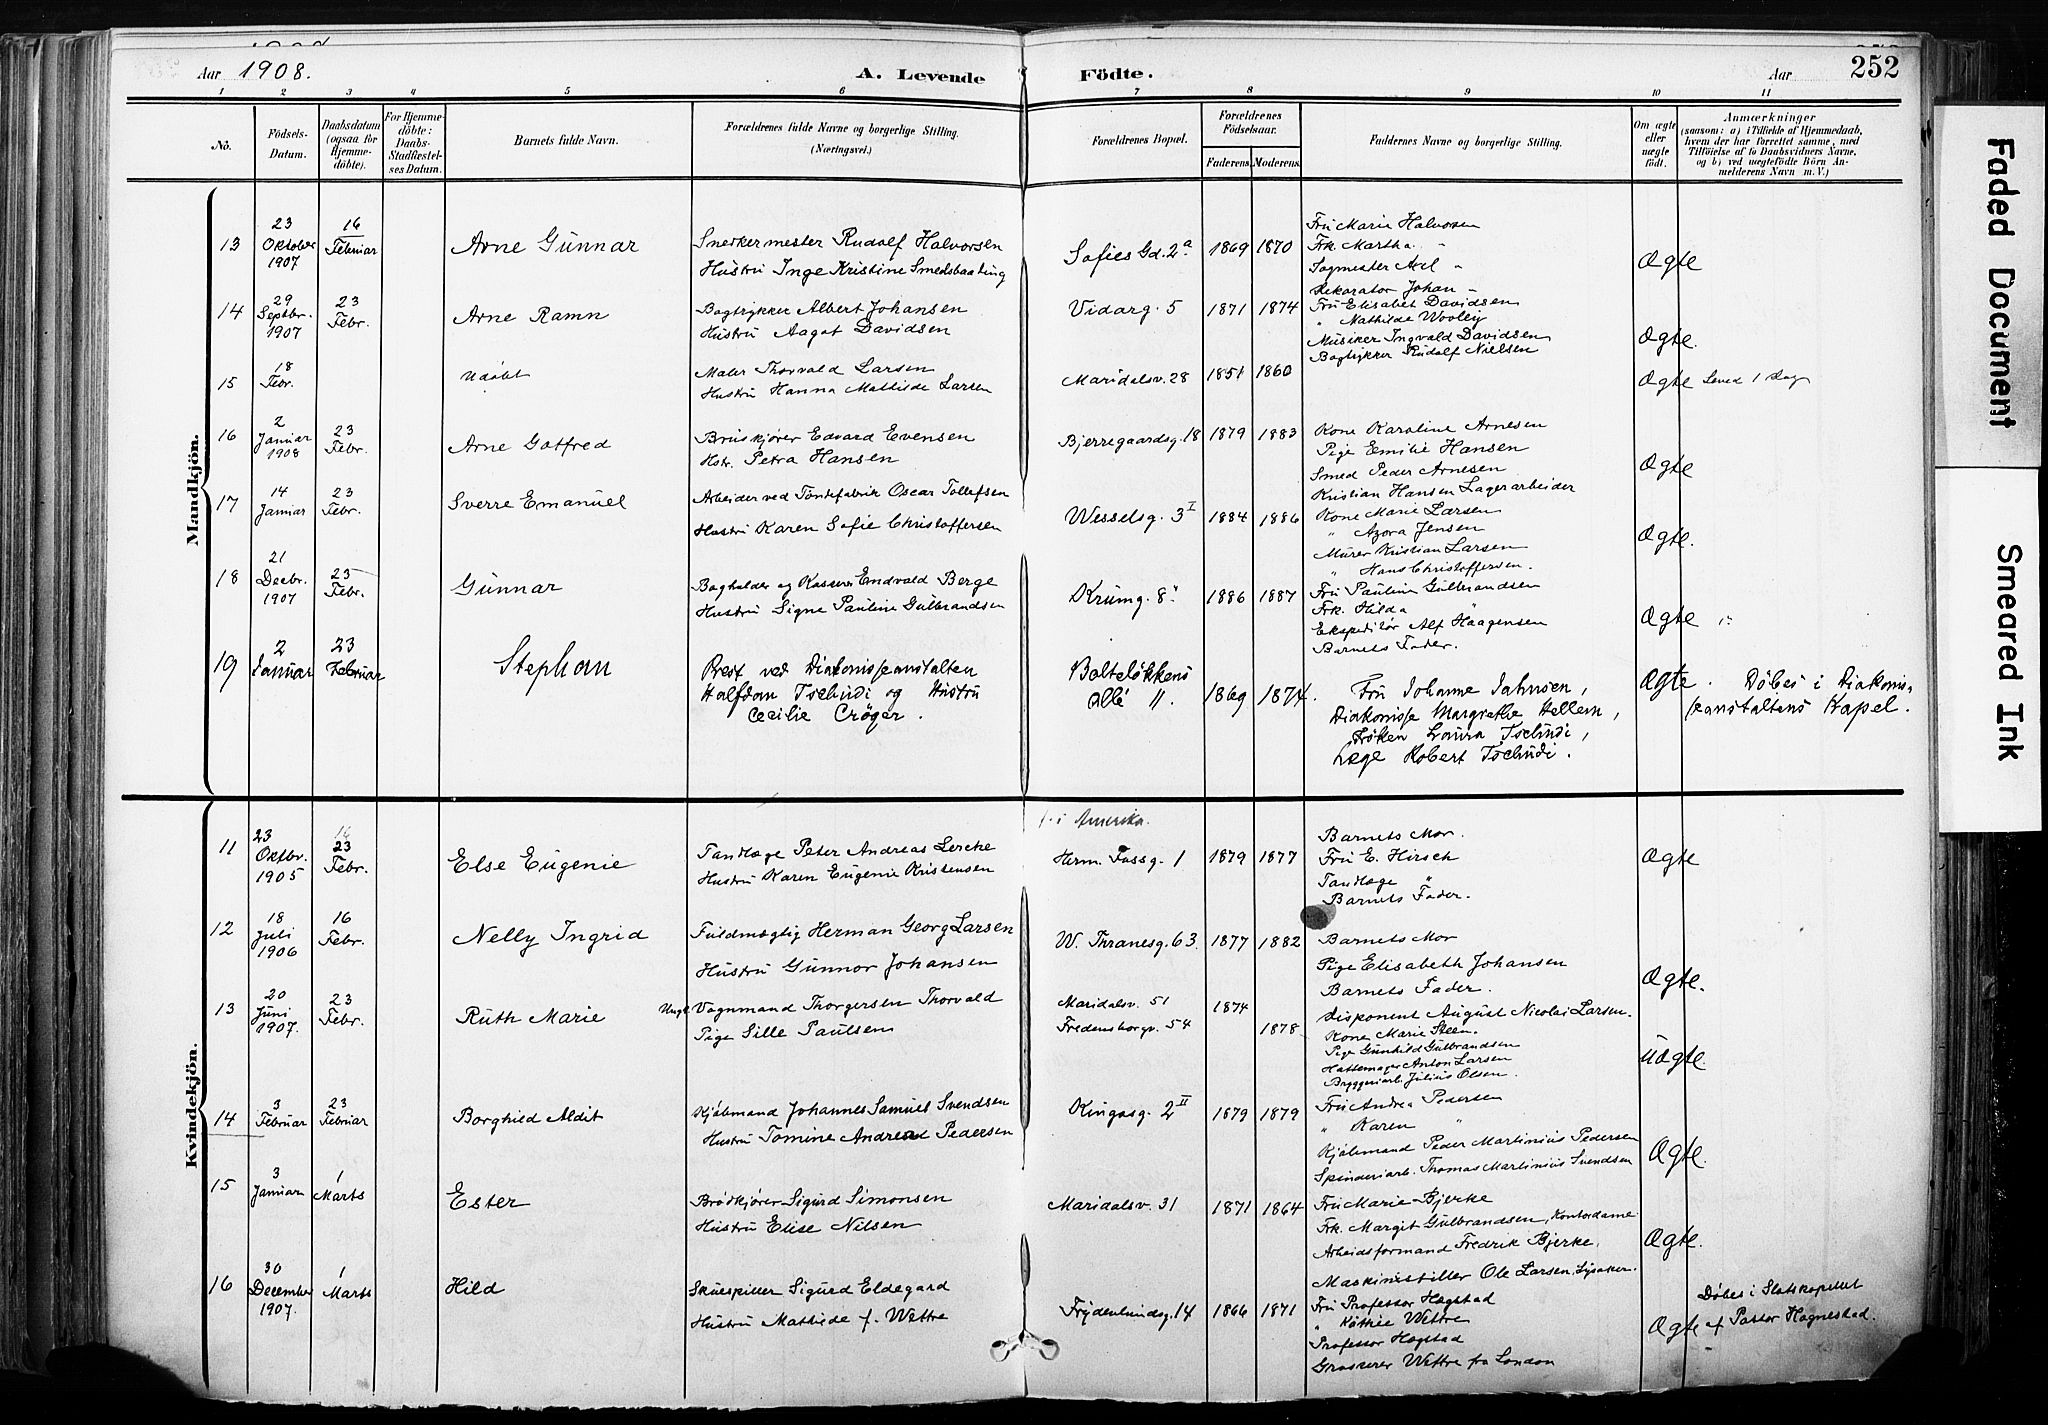 Aar 1908. A. Levende Födte. Aar 252
1 2 3 4 5 6 7 8 9 10 11
No.
Födsels-Datum.
Daabsdatum (ogsaa for Hjemme-döbte).
For Hjemme-döbte: Daabs-Stadfæstel-ses Datum.
Barnets fulde Navn.
Forældrenes fulde Navne og borgerlige Stilling. (Næringsvei.)
Forældrenes Bopæl.
Forældrenes Födselsaar.
Faderens. Moderens.
Faddernes Navne og borgerlige Stilling.
Om ægte eller uægte födt.
Anmærkninger
(saasom: a) i Tilfælde af Hjemmedaab,
hvem der har forrettet samme, med
Tilföielse af to Daabsvidners Navne,
og b) ved uægtefödte Börn An-
melderens Navn m. V.)
Mandkjön.
13 23 Oktober 1907 16 Februar Arne Gunnar
Snedkermester Rudolf Halvorsen
Hustru Inge Kristine Smedsbakking
Sofies Gd. 2a 1869 1870
Fru Marie Halvorsen
Frk. Martha "
Sagmester Axel "
Dekoratør Johan "
Ægte
14 29 Septbr. 1907 23 Febr. Arne Ramn
Bogtrykker Albert Johansen
Hustru Aagot Davidsen
Vidarg. 5 1871 1874
Fru Elisabet Davidsen
" Mathilde Wooley
Musiker Ingvald Davidsen
Bogtrykker Rudolf Nielsen
Ægte.
15 18 Febr. Udøbt
Maler Thorvald Larsen
Hustru Hanna Mathilde Larsen
Maridalsv. 28 1851 1860
Ægte Leved 1 Dag
16 2 Januar 1908 23 Febr. Arne Gotfred
Bruskjører Edvard Evensen
Hstr. Petra Hansen
Bjerregaardsg. 18 1879 1883
Kone Karoline Arnesen
Pige Emilie Hansen
Smed Peder Arnesen
Kristian Hansen Lagerarbeider
Ægte
17 14 Januar 23 Febr. Sverre Emanuel
Arbeider ved Tøndefabrik Oscar Tollefsen
Hustru Karen Sofie Christoffersen
Wesselsg. 3 I 1884 1886
Kone Marie Larsen
" Azora Jensen
Murer Kristian Larsen
" Hans Christoffersen.
Ægte.
18 21 Decbr. 1907 23 Febr. Gunnar
Bogholder og Kasserer Endvald Berge
Hustru Signe Pauline Gulbrandsen
Krumg. 8" 1886 1887
Fru Pauline Gulbrandsen
Frk. Hilda "
Ekspeditør Alf Haagensen
Barnets Fader.
Ægte
19 2 Januar 23 Februar Stephan
Prest ved Diakonisseanstalten
Halfdan Tschudi og Hustru
Cecilie Crøger.
Bolteløkkens
Allé 11. 1869 1874.
Fru Johanne Jahnsen,
Diakonisse Margrethe Hellem,
Frøken Laura Tschudi,
Læge Robert Tschudi.
Ægte. Døbes i Diakonis-
seanstaltens Kapel.
Kvindekjön.
11 23 Oktbr. 1905 16 23 Febr. Else Eugenie
Tandlæge Peter Andreas Lercke
Hustru Karen Eugenie Kristensen
f. i Amerika.
Herm. Fossg. 1 1879 1877
Barnets Mor.
Fru E. Hirsch
Tandlæge "
Barnets Fader.
Ægte
12 18 Juli 1906 16 Febr. Nelly Ingrid
Fuldmægtig Herman Georg Larsen
Hustru Gunnor Johansen
W. Thranesg. 63. 1877 1882
Barnets Mor
Pige Elisabeth Johansen
Barnets Fader.
Disponent August Nicolai Larsen.
Ægte.
13 20 Juni 1907. 23 Febr. Ruth Marie
Ungk. Vognmand Thorgersen Thorvald
Pige Sille Paulsen
Maridalsv. 51 1874
Fredensborgv. 54 1878
Kone Marie Steen.
Pige Gunhild Gulbrandsen
Hattemager Anton Larsen
Bryggeriarb. Julius Olsen.
Uægte.
14 3 Februar 23 Februar Borghild Aldit
Kjøbmand Johannes Samuel Svendsen
Hustru Tomine Andrea Pedersen
Kingosg. 2 II 1879 1879
Fru Andrea Pedersen
" Karen "
Kjøbmand Peder Martinius Pedersen
Spinderiarb. Thomas Martinius Svendsen
Ægte.
15 3 Januar 1 Marts Ester
Brødkjører Sigurd Simonsen
Hustru Elise Nilsen
Maridalsv. 31 1871 1864
Fru Marie Bjerke
Frk. Margit Gulbrandsen, Kontordame
Arbeidsformand Fredrik Bjerke.
Maskinistiller Ole Larsen, Lysaker.
Ægte.
16 30 December 1907. 1 Marts Hild
Skuespiller Sigurd Eldegard
Hustru Mathilde f. Wettre
Frydenlundsg. 14 1866 1871
Fru Professor Hægstad
" Käthie Wettre
Professor Hægstad
Grosserer Wettre fra London
Ægte
Døbes i Slotskapellet
af Pastor Hognestad.
Faded Document
Smeared Ink